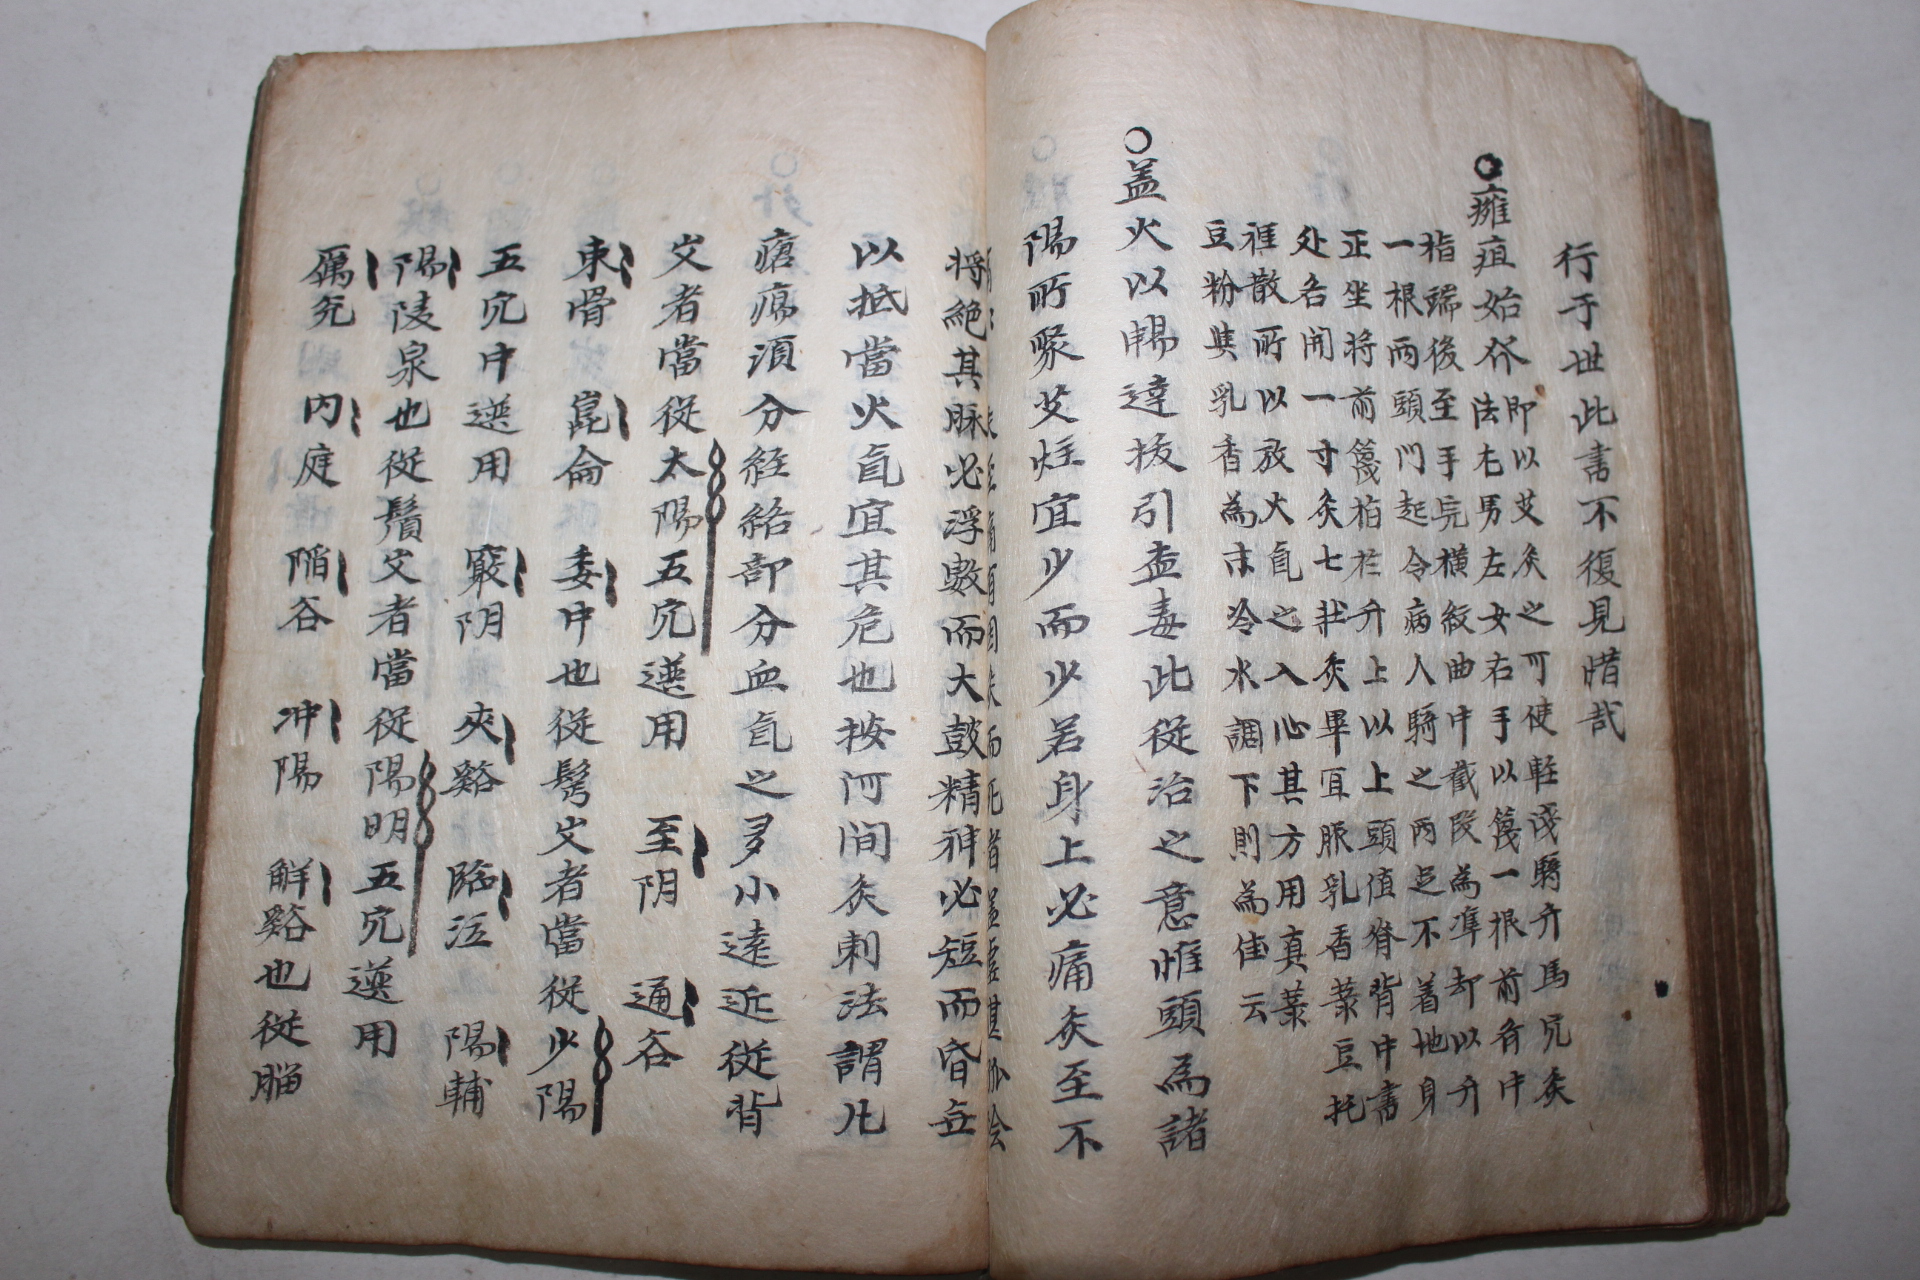 行于世此書不復見惜哉
○癰疽始发即以艾灸之可使軽淺騎竹馬穴灸
法尢男左女右手以篾一根前肘中
指端後至手完横紋曲中截段為準却以竹
一根兩頭門起令病人騎之两足不着地身
正坐将前篾柏於竹上以上頭值脊背中書
处各開一寸灸七壯灸畢宜服乳香菉豆托
裡散所以放火氣之入心其方用真菉
豆粉與乳香為末冷水調下則為佳云
○盖火以暢達拔引盃毒此従治之意惟頭為諸
陽所聚艾炷宜少而少若身上必痛灸至不
将絶其脉必浮數而大鼓精神必短而昏無
以抵當火氣宜其危也按河间灸刺法謂凡
瘡瘍須分経絡部分血氣之多小逺近従背
出者當従太陽五穴選用 至阴 通谷
束骨 崑侖 委中也従鬂出者當従少陽
五穴中選用 竅阴 夾谿 臨泣 陽輔
陽陵泉也従鬚出者當従陽明五穴選用
厲兊 内庭 陷谷 冲陽 觧谿也従脳